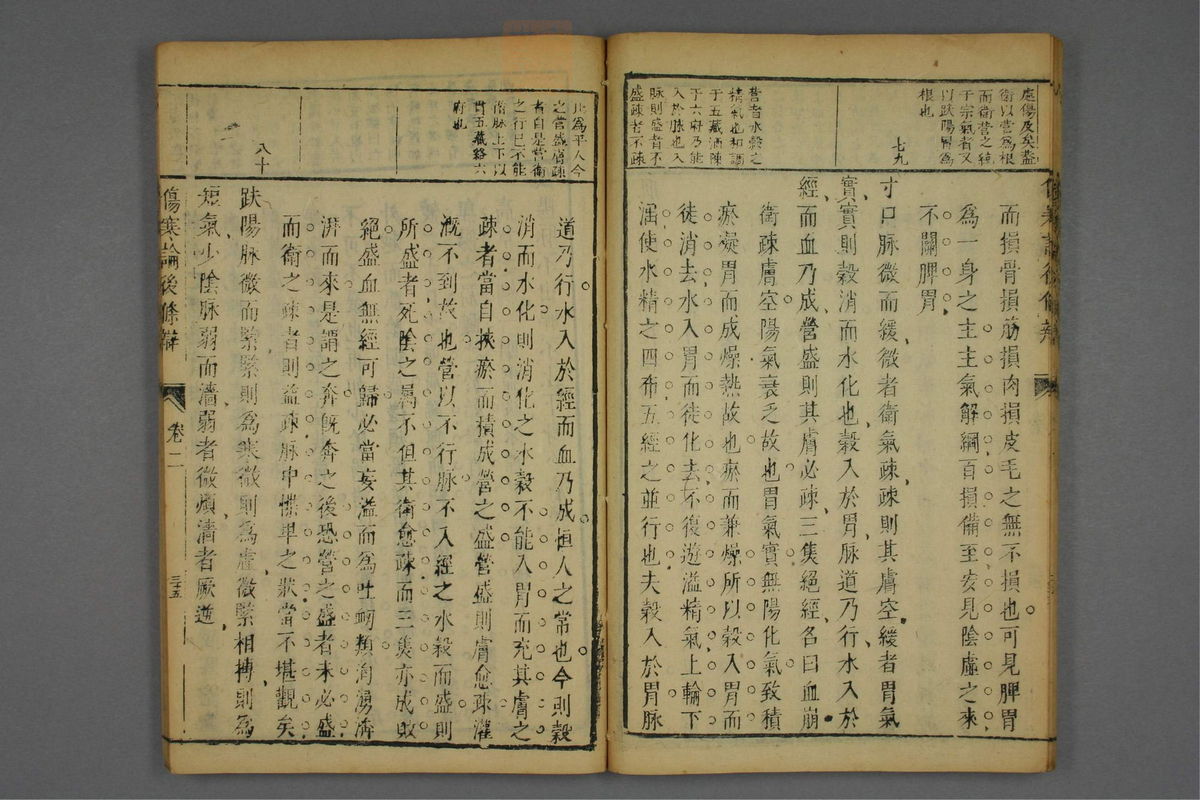 虛傷及矣蓋
衛以營為根
而衛營之統
于宗氣者又
以趺陽胃為
根也
七九
營者水穀之
精氣也和調
于五藏洒陳
于六府乃能
入於脉也入
脉則盛者不
盛疎者不疎
而損骨損筋損肉損皮毛之無不損也可見脾胃
為一身之主主氣解綱百損備至安見陰虛之來
不關脾胃
寸口脉微而緩微者衛氣疎疎則其膚空緩者胃氣
實實則穀消而水化也穀入於胃脉道乃行水入於
經而血乃成營盛則其膚必疎三焦絕經名曰血崩
衛疎膚空陽氣衰乏故也胃氣實無陽化氣致積
瘀凝胃而成燥熱故也瘀而兼燥所以穀入胃而
徒消去水入胃而徒化去不復遊溢精氣上輸下
濡使水精之四布五經之並行也夫穀入於胃脉
傷寒論後條辨
此為平人今
之營盛膚疎
者自是營衛
之行已不能
循脉上下以
貫五藏絡六
府也
八十
道乃行水入於經而血乃成恒人之常也今則穀
消而水化則消化之水穀不能入胃而充其膚之
疎者當自挾瘀而積成營之盛營盛則膚愈疎灌
溉不到故也營以不行脉不入經之水穀而盛則
所盛者死陰之屬不但其衛愈疎而三焦亦成敗
絕盛血無經可歸必當妄溢而為吐衄類洶湧濟
湃而來是謂之奔既奔之後恐營之盛者未必盛
而衛之疎者則益疎脉中慄卑之狀當不堪觀矣
趺陽脉微而緊緊則為寒微則為虛微緊相摶則為
短氣少陰脉弱而濇弱者微煩濇者厥逆
傷寒論後條辯
卷二
三十五